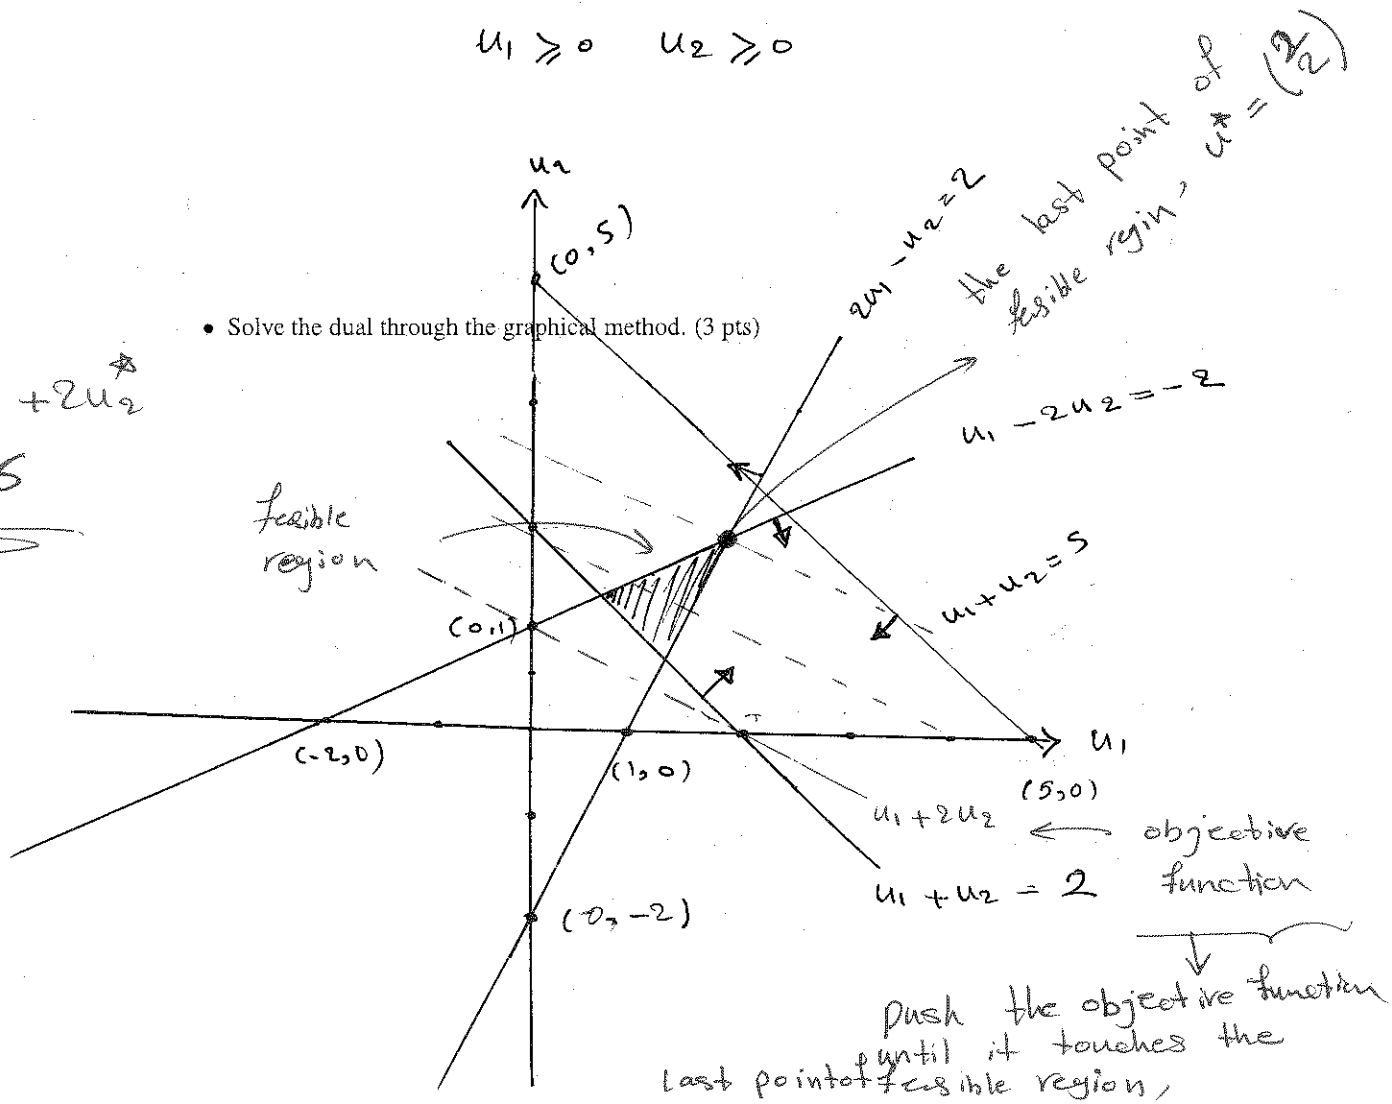 u₁ ⩾ 0 u₂ ⩾ 0
the last point of
fesible regin, u* = (2 2)
u₂
(0,5)
2u₁ - u₂ = 2
• Solve the dual through the graphical method. (3 pts)
+2u₂*
u₁ - 2u₂ = -2
fesible
region
u₁ + u₂ = 5
(0,1)
(-2,0)
(1,0)
u₁
(5,0)
u₁ + 2u₂ ← objective
function
u₁ + u₂ = 2
(0,-2)
push the objective function
until it touches the
last point of fesible region,